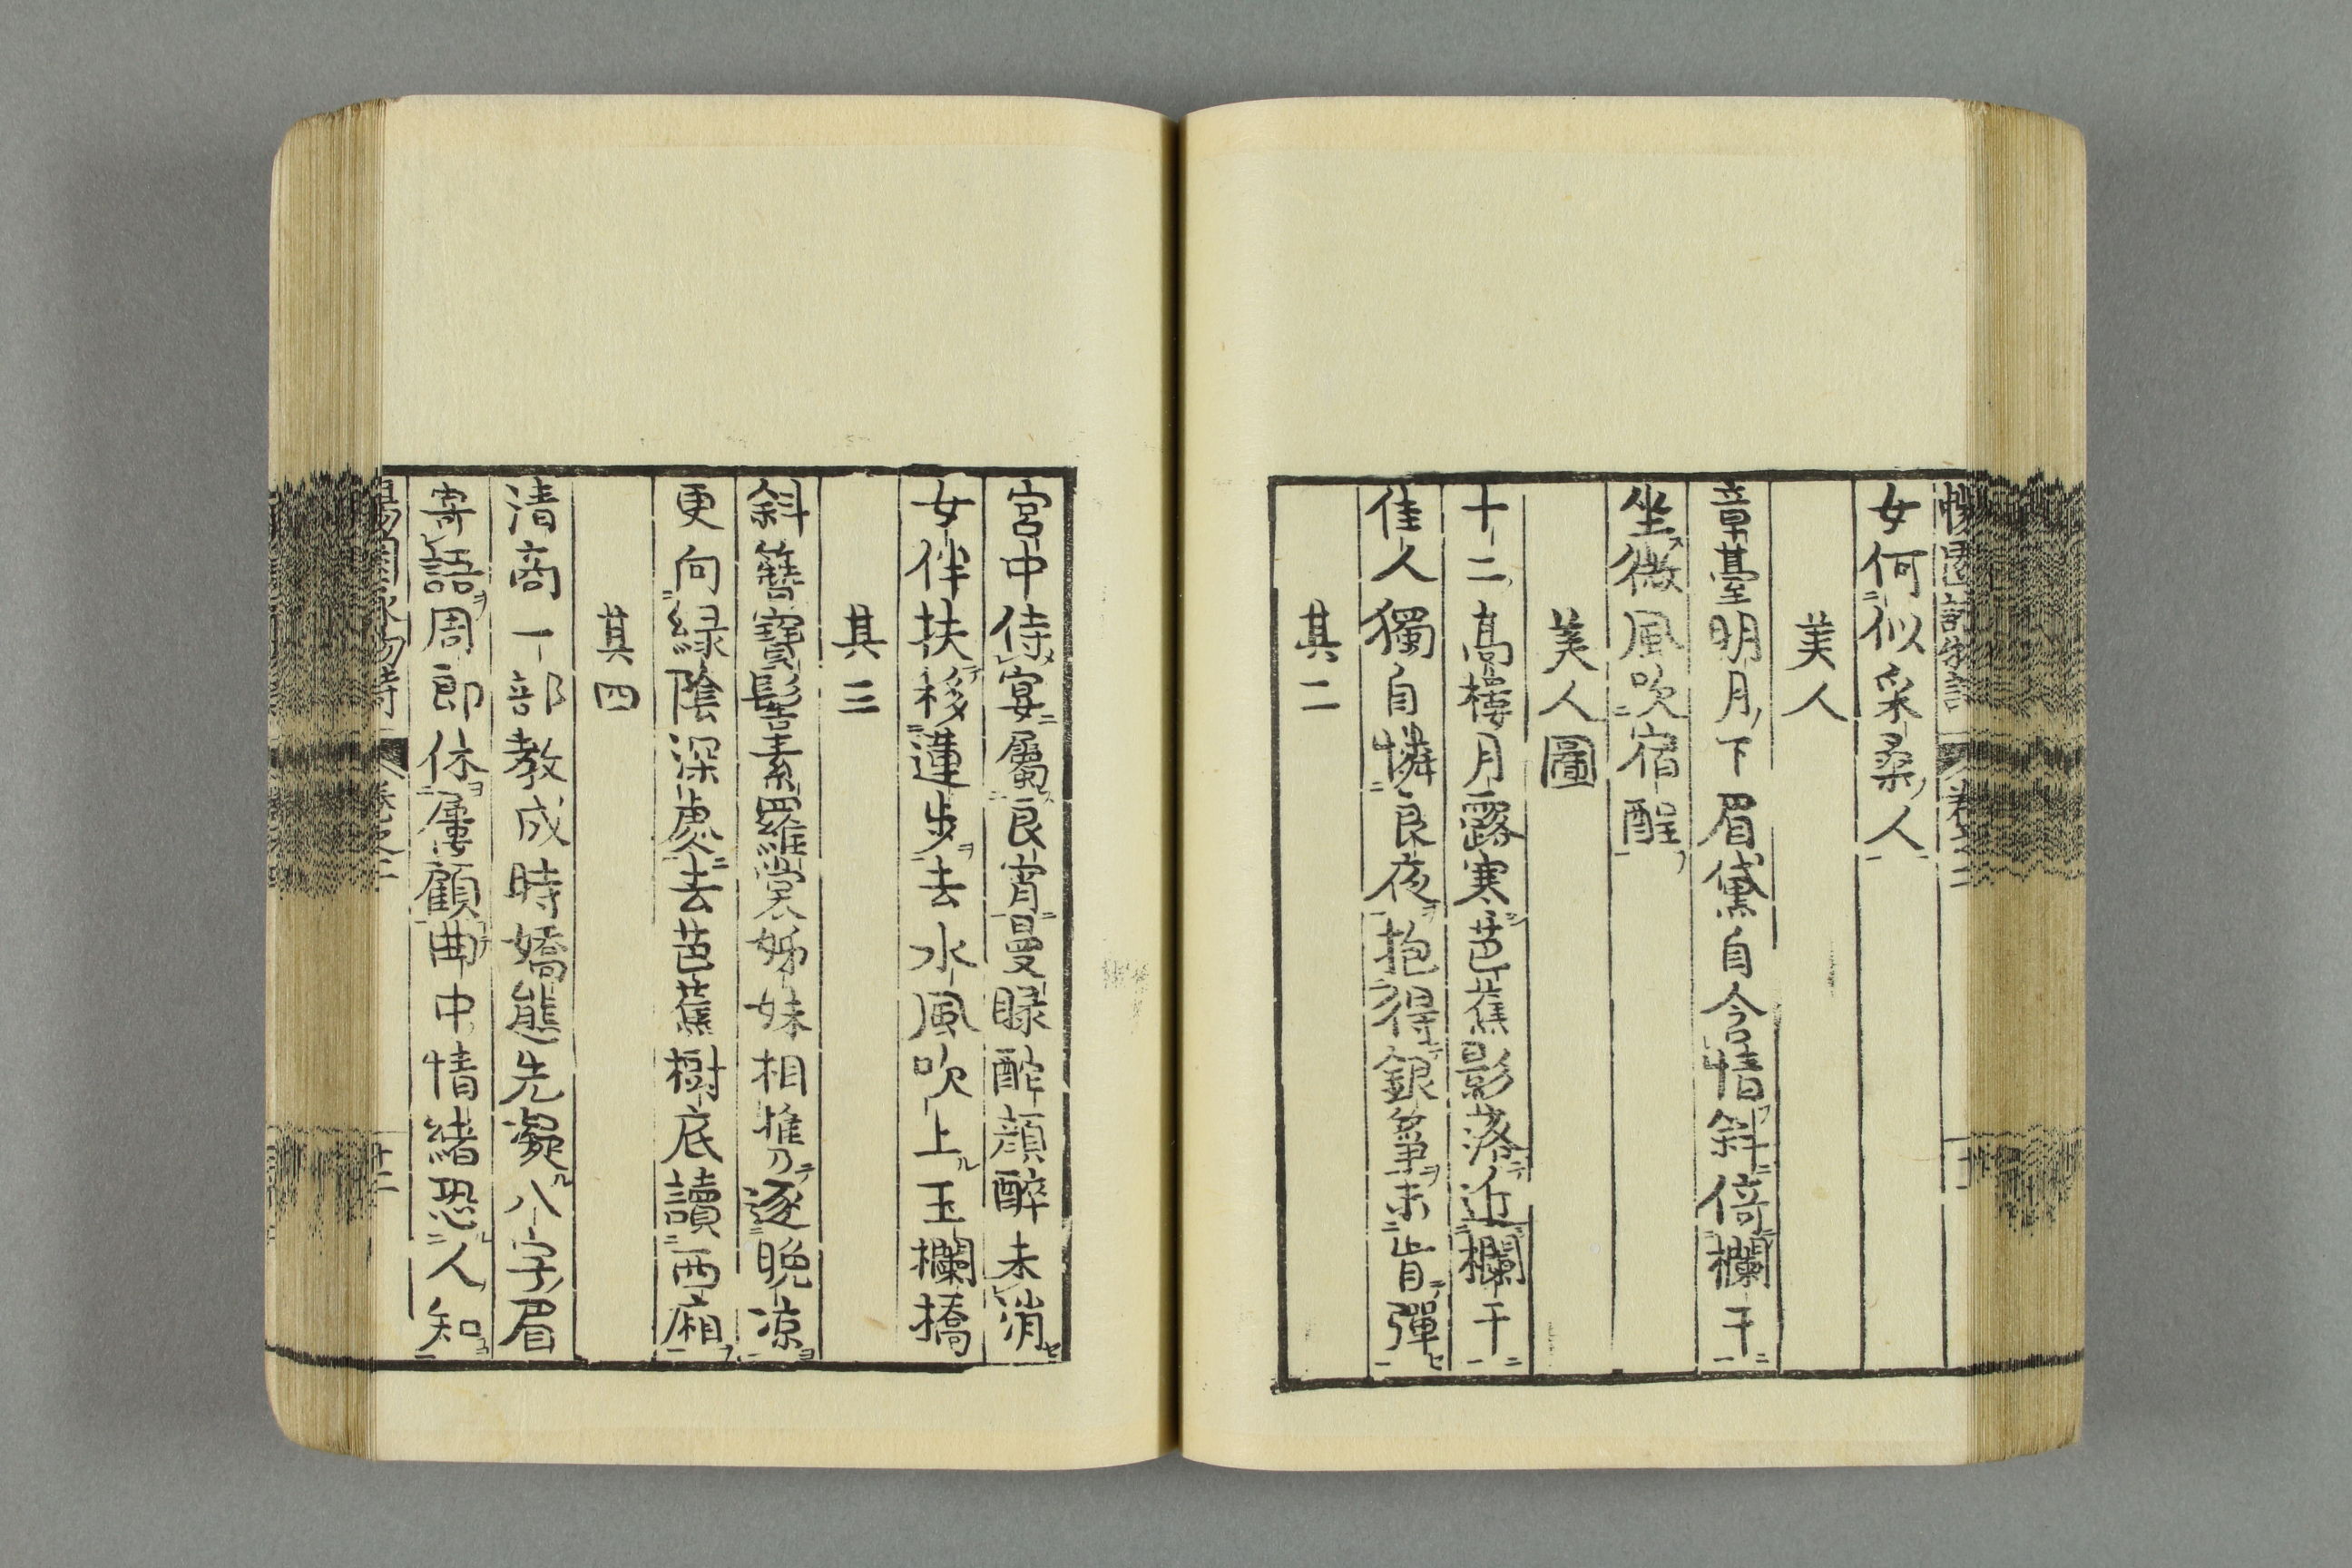 女何似采桑人
美人
章臺明月下眉黛自含情斜倚欄干
坐微風吹宿酲
美人圖
十二高樓月露寒芭蕉影落近欄干
佳人獨自憐良夜抱得銀箏未肯彈
其二
宮中侍宴屬良宵曼睩酡顔醉未消
女伴扶移蓮步去水風吹上玉欄橋
其三
斜簪寶髻素羅裳姊妹相携逐晚凉
更向緑陰深處去芭蕉樹底讀西廂
其四
清商一部教成時嬌態先凝八字眉
寄語周郎休屢顧曲中情緒恐人知
卷之二
十二